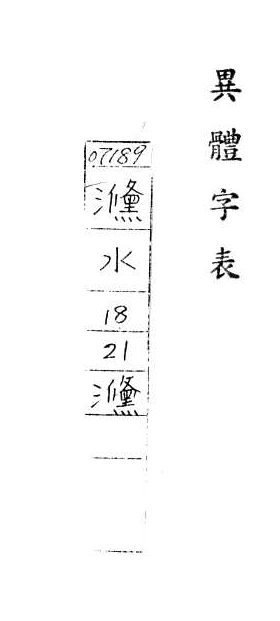 異體字表
07189
水
18
21